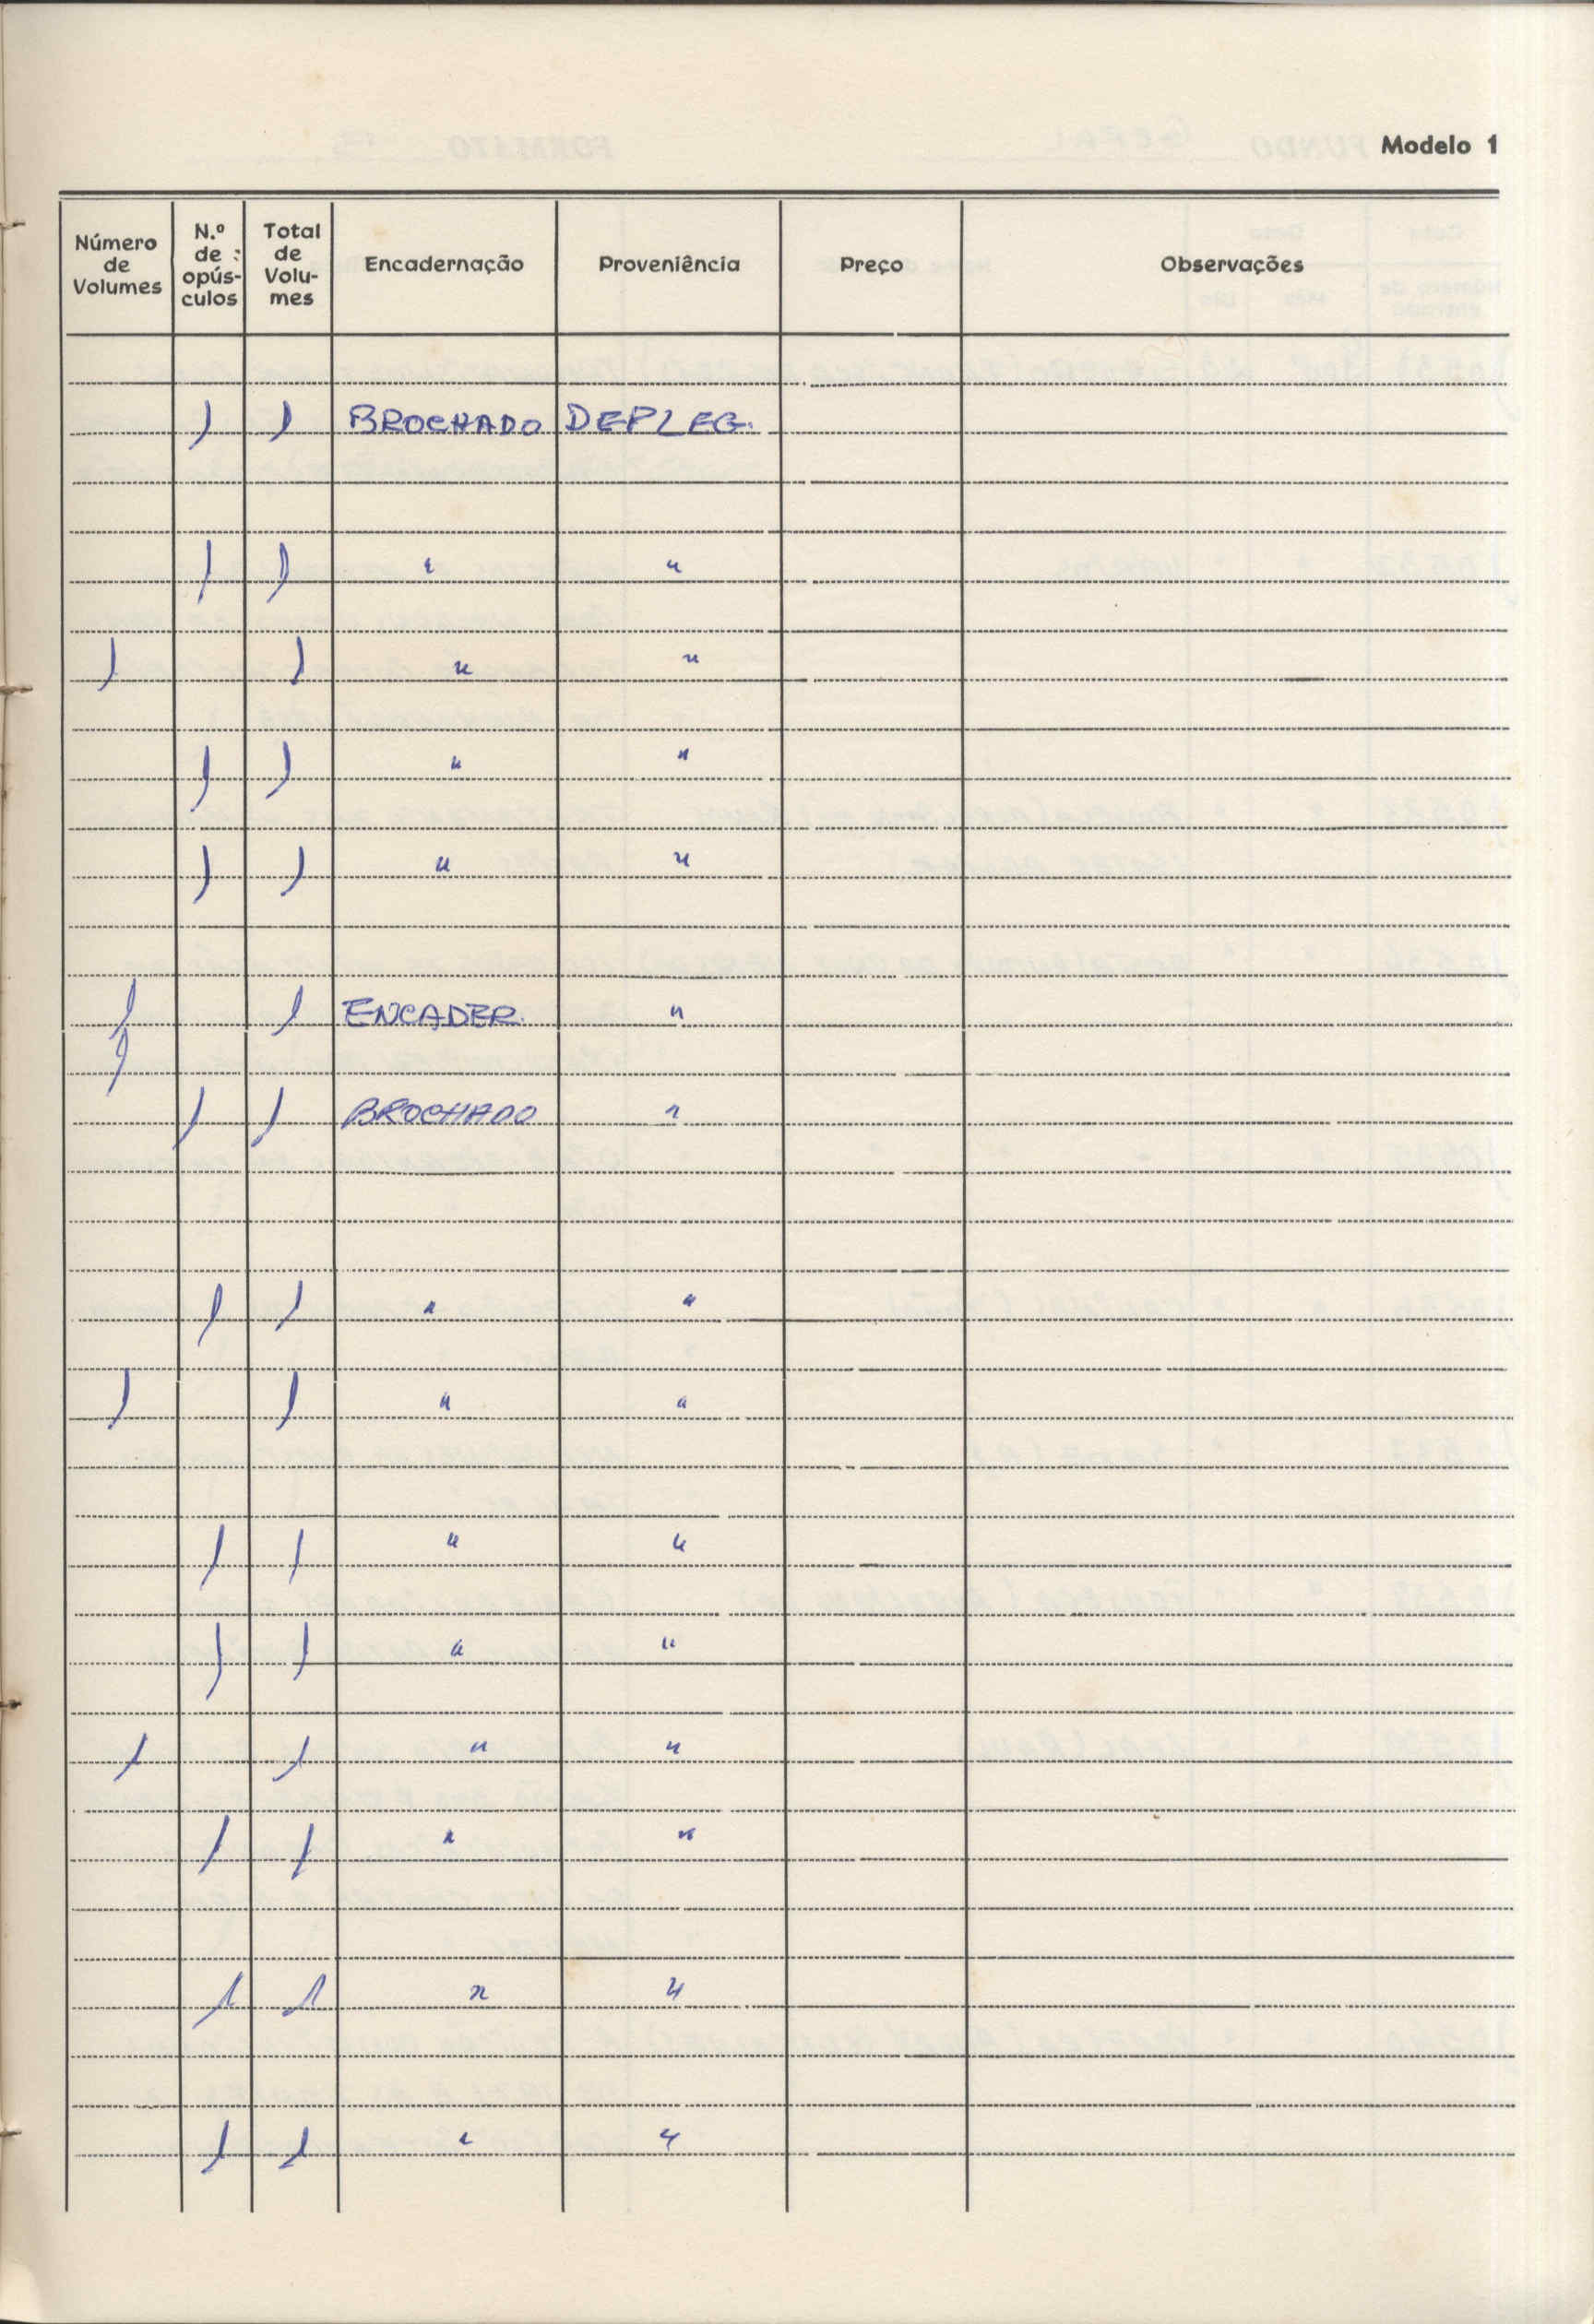 Modelo 1
Número de Volumes | N.º de opúsculos | Total de Volu-mes | Encadernação | Proveniência | Preço | Observações
1 1 BROCHADO DEP LEG.
1 1 " "
1 1 " "
1 1 " "
1 1 " "
1 1 ENCADER. "
1
1 1 BROCHADO "
1 1 " "
1 1 " "
1 1 " "
1 1 " "
1 1 " "
1 1 " "
1 1 " "
1 1 " "